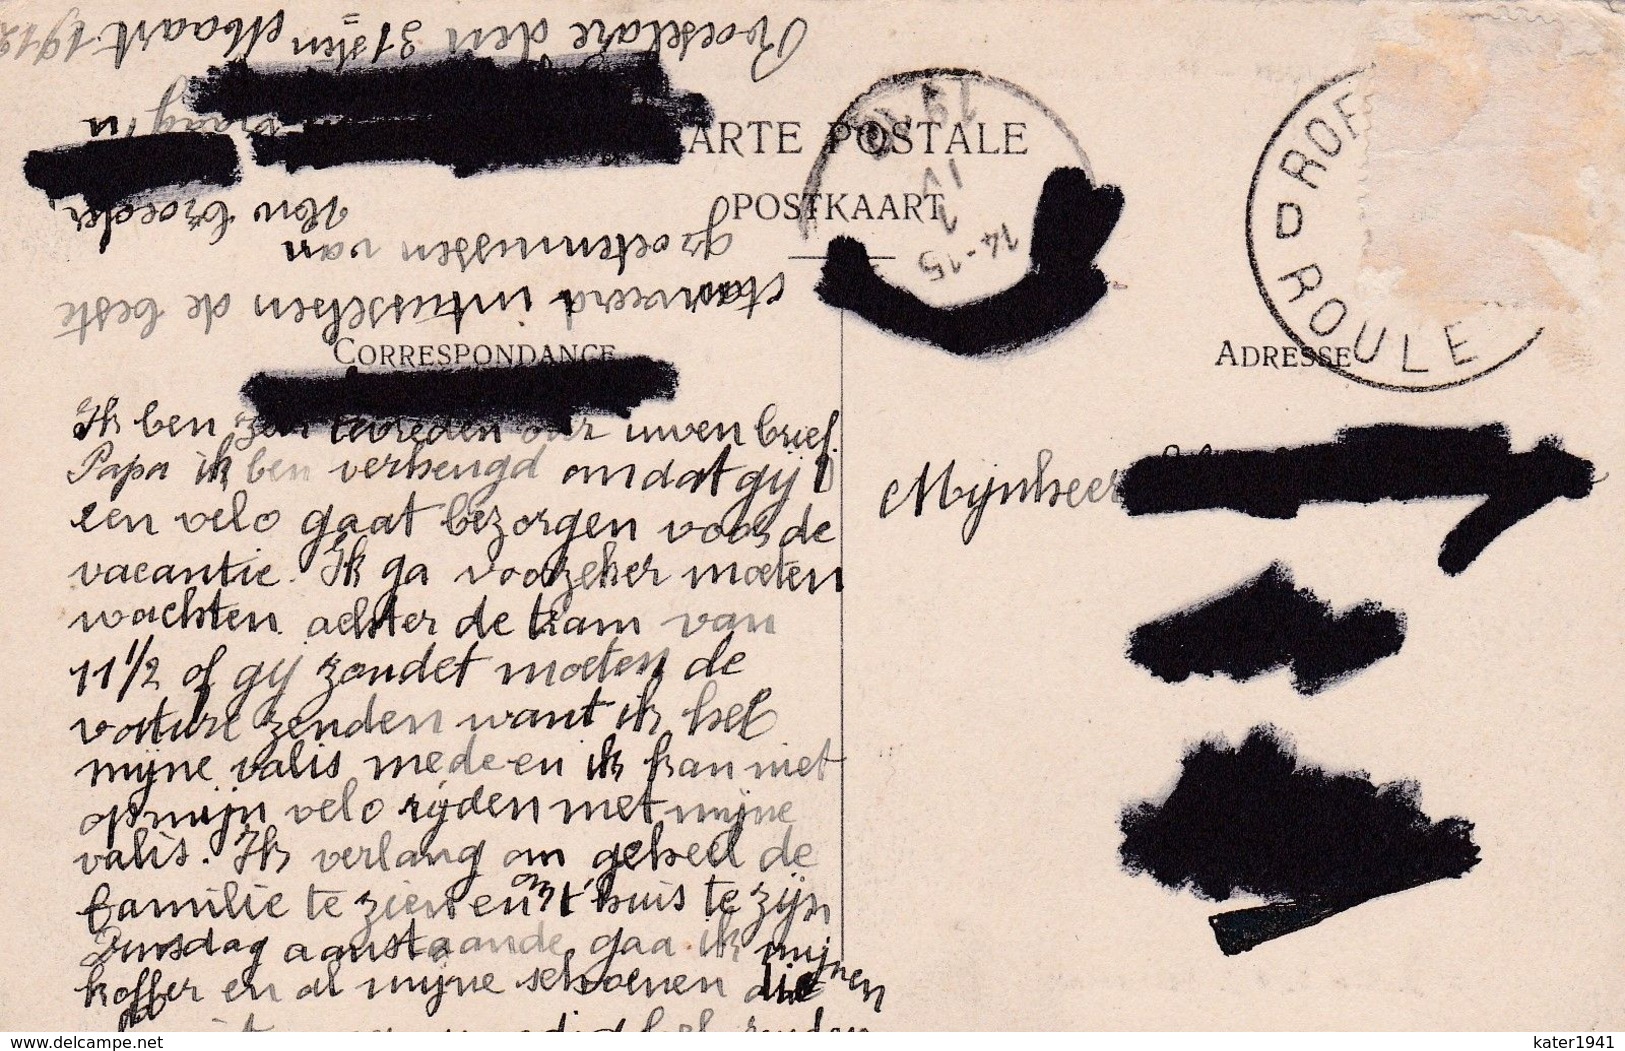 Roeselare den 31sten Maart 1912
ARTE POSTALE
POSTKAART
CORRESPONDANCE
ADRESSE
14-15
1
IV
19
ROULE
Ik ben zeer tevreden over uwen brief.
Papa ik ben verheugd omdat gij
een velo gaat bezorgen voor de
vacantie. Ik ga voorzeker moeten
wachten achter de tram van
11 1/2 of gij zoudet moeten de
voiture zenden want ik heb
mijne valis mede en ik kan niet
op mijn velo rijden met mijne
valis. Ik verlang om geheel de
familie te zien en om t'huis te zijn
Dinsdag aanstaande gaa ik mijnen
koffer en al mijne schoenen die
zenden
aanveerd intusschen de beste
groetenissen van
Uw broeder
Mijnheer
delcampe.net
kater1941